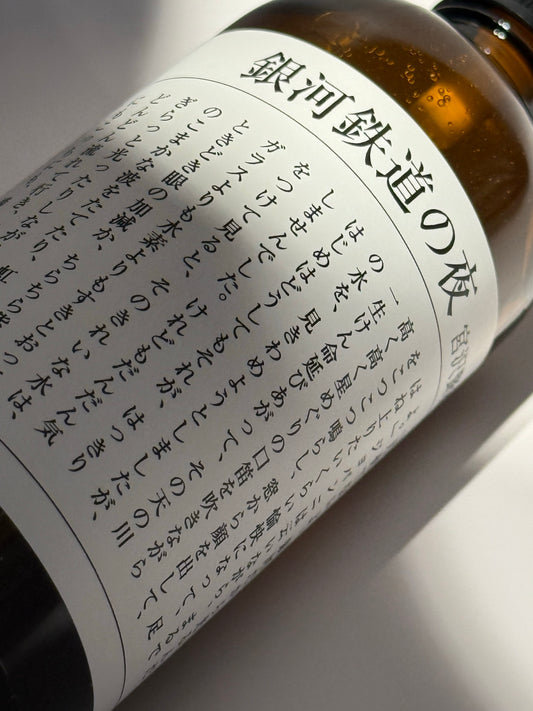 銀河鉄道の夜
宮沢
はね上りたいくらい愉快になって、足
をこつこつ鳴らし、窓から顔を出して、
高く高く星めぐりの口笛を吹きながら
一生けん命延びあがって、その天の川
の水を、見きわめようとしましたが、
はじめはどうしてもそれが、はっきり
しませんでした。けれどもだんだん気
をつけて見ると、そのきれいな水は、
ガラスよりも水素よりもすきとおっ
ときどき眼の加減か、ちらちら紫
のこまかな波をたてたり、虹
ぎらっと光ったりしながら、
どんどん流れて行き、